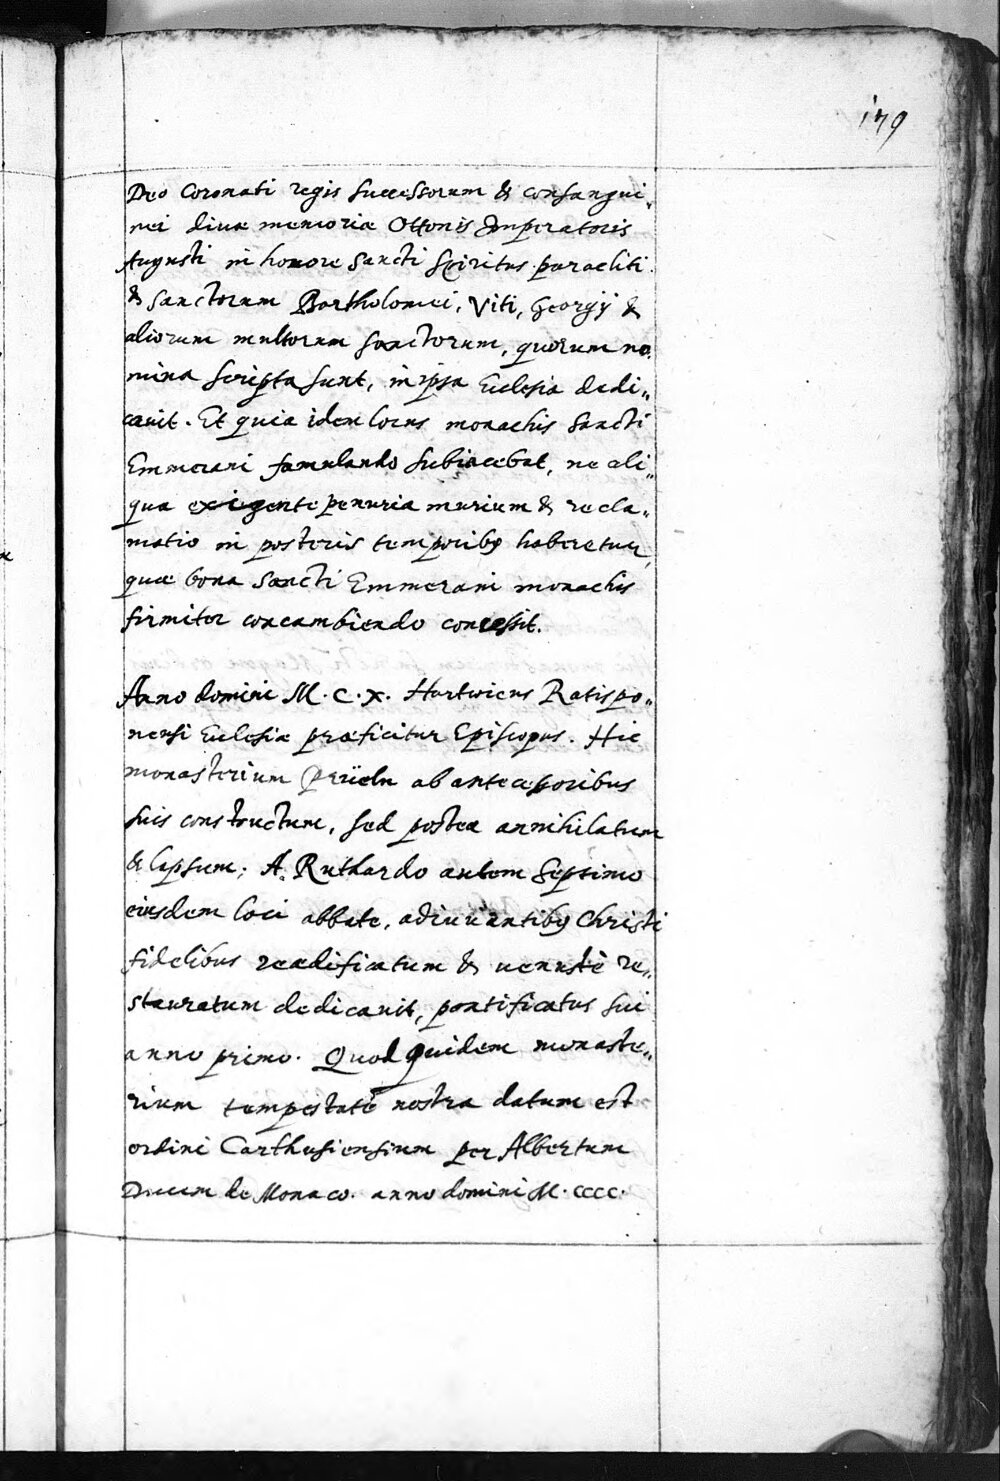 179
Deo coronati regis successorum & consangui„
nei divæ memoriæ Ottonis Imperatoris
Augusti in honore Sancti Spiritus paracliti
& sanctorum Bartholomei, Viti, Georgij &
aliorum multorum sanctorum, quorum no„
mina scripta sunt, in ipsa Ecclesia dedi„
cauit. Et quia idem locus monachis Sancti
Emmerani famulando subiacebat, ne ali„
qua exigente penuria murium & recla„
matio in posteris temporibꝯ haberetur,
quæ bona Sancti Emmerani monachis
firmiter concambiendo concessit.
Anno domini M. C. X. Hartwicus Ratispo„
nensi Ecclesiæ præficitur Episcopus. Hic
monasterium Prüeln ab antecessoribus
suis constructum, sed postea annihilatum
& lapsum; A. Ruthardo autem Septimo
eiusdem loci abbate, adiuuantibꝯ Christi
fidelibus reædificatum & uenustè re„
stauratum dedicauit, pontificatus sui
anno primo. Quod quidem monaste„
rium tempestate nostra datum est
ordini Carthusiensium per Albertum
Ducem de Monaco. anno domini M. CCCC.